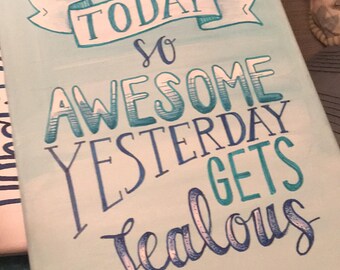 TODAY
so
AWESOME
YESTERDAY
GETS
Jealous